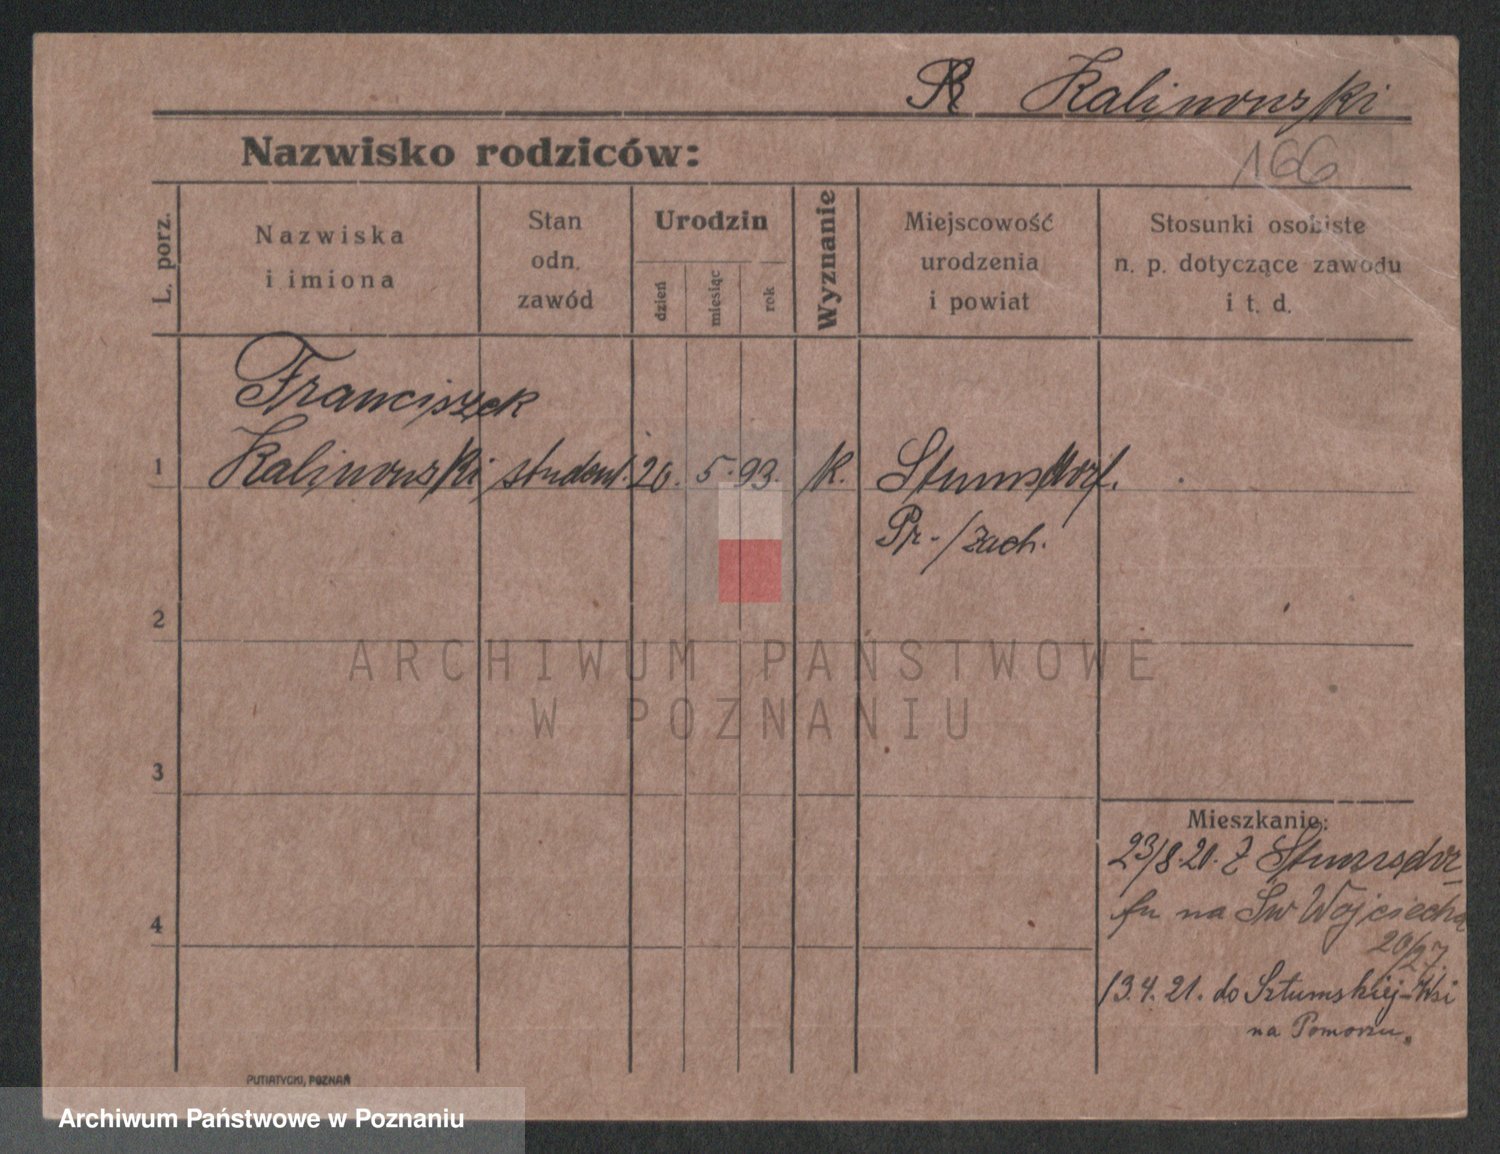 R Kalinowski
Nazwisko rodziców:
166
L. porz.
Nazwiska
i imiona
Stan
odn.
zawód
Urodzin
dzień
miesiąc
rok
Wyznanie
Miejscowość
urodzenia
i powiat
Stosunki osobiste
n. p. dotyczące zawodu
i t. d.
Franciszek
1 Kalinowski student. 20. 5. 93. k. Stumsdorf.
Pr. zach.
2
3
4
Mieszkanie:
23/8.20. Z Stumsdor-
fu na Św Wojciecha
20/27.
13.4.21. do Sztumskiej-Wsi
na Pomorzu.
PUTIATYCKI, POZNAŃ
ARCHIWUM PAŃSTWOWE
W POZNANIU
Archiwum Państwowe w Poznaniu